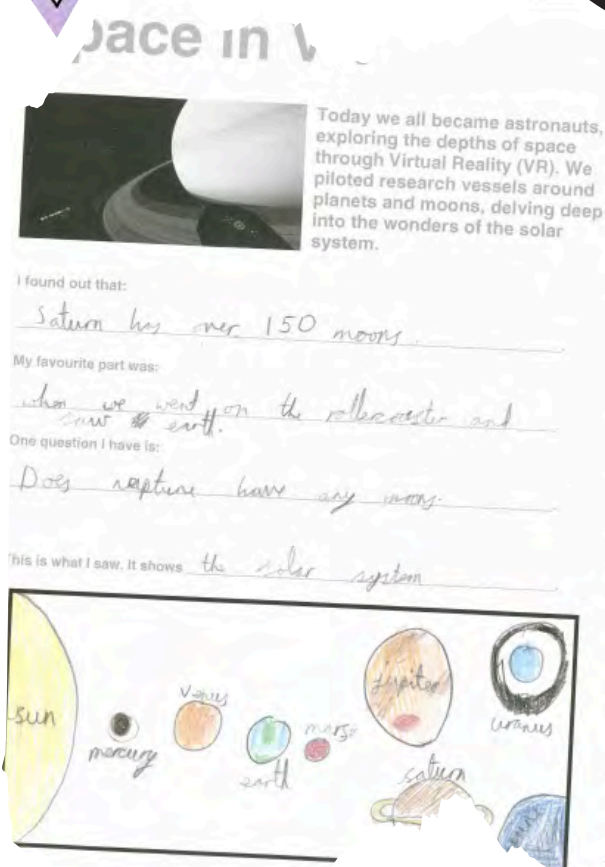 pace in V
Today we all became astronauts,
exploring the depths of space
through Virtual Reality (VR). We
piloted research vessels around
planets and moons, delving deep
into the wonders of the solar
system.
I found out that:
Saturn has over 150 moons.
My favourite part was:
when we went on the rollercoaster and
saw earth.
One question I have is:
Does neptune have any moons.
his is what I saw. It shows the solar system
sun
mercury
venus
earth
mars
jupiter
saturn
uranus